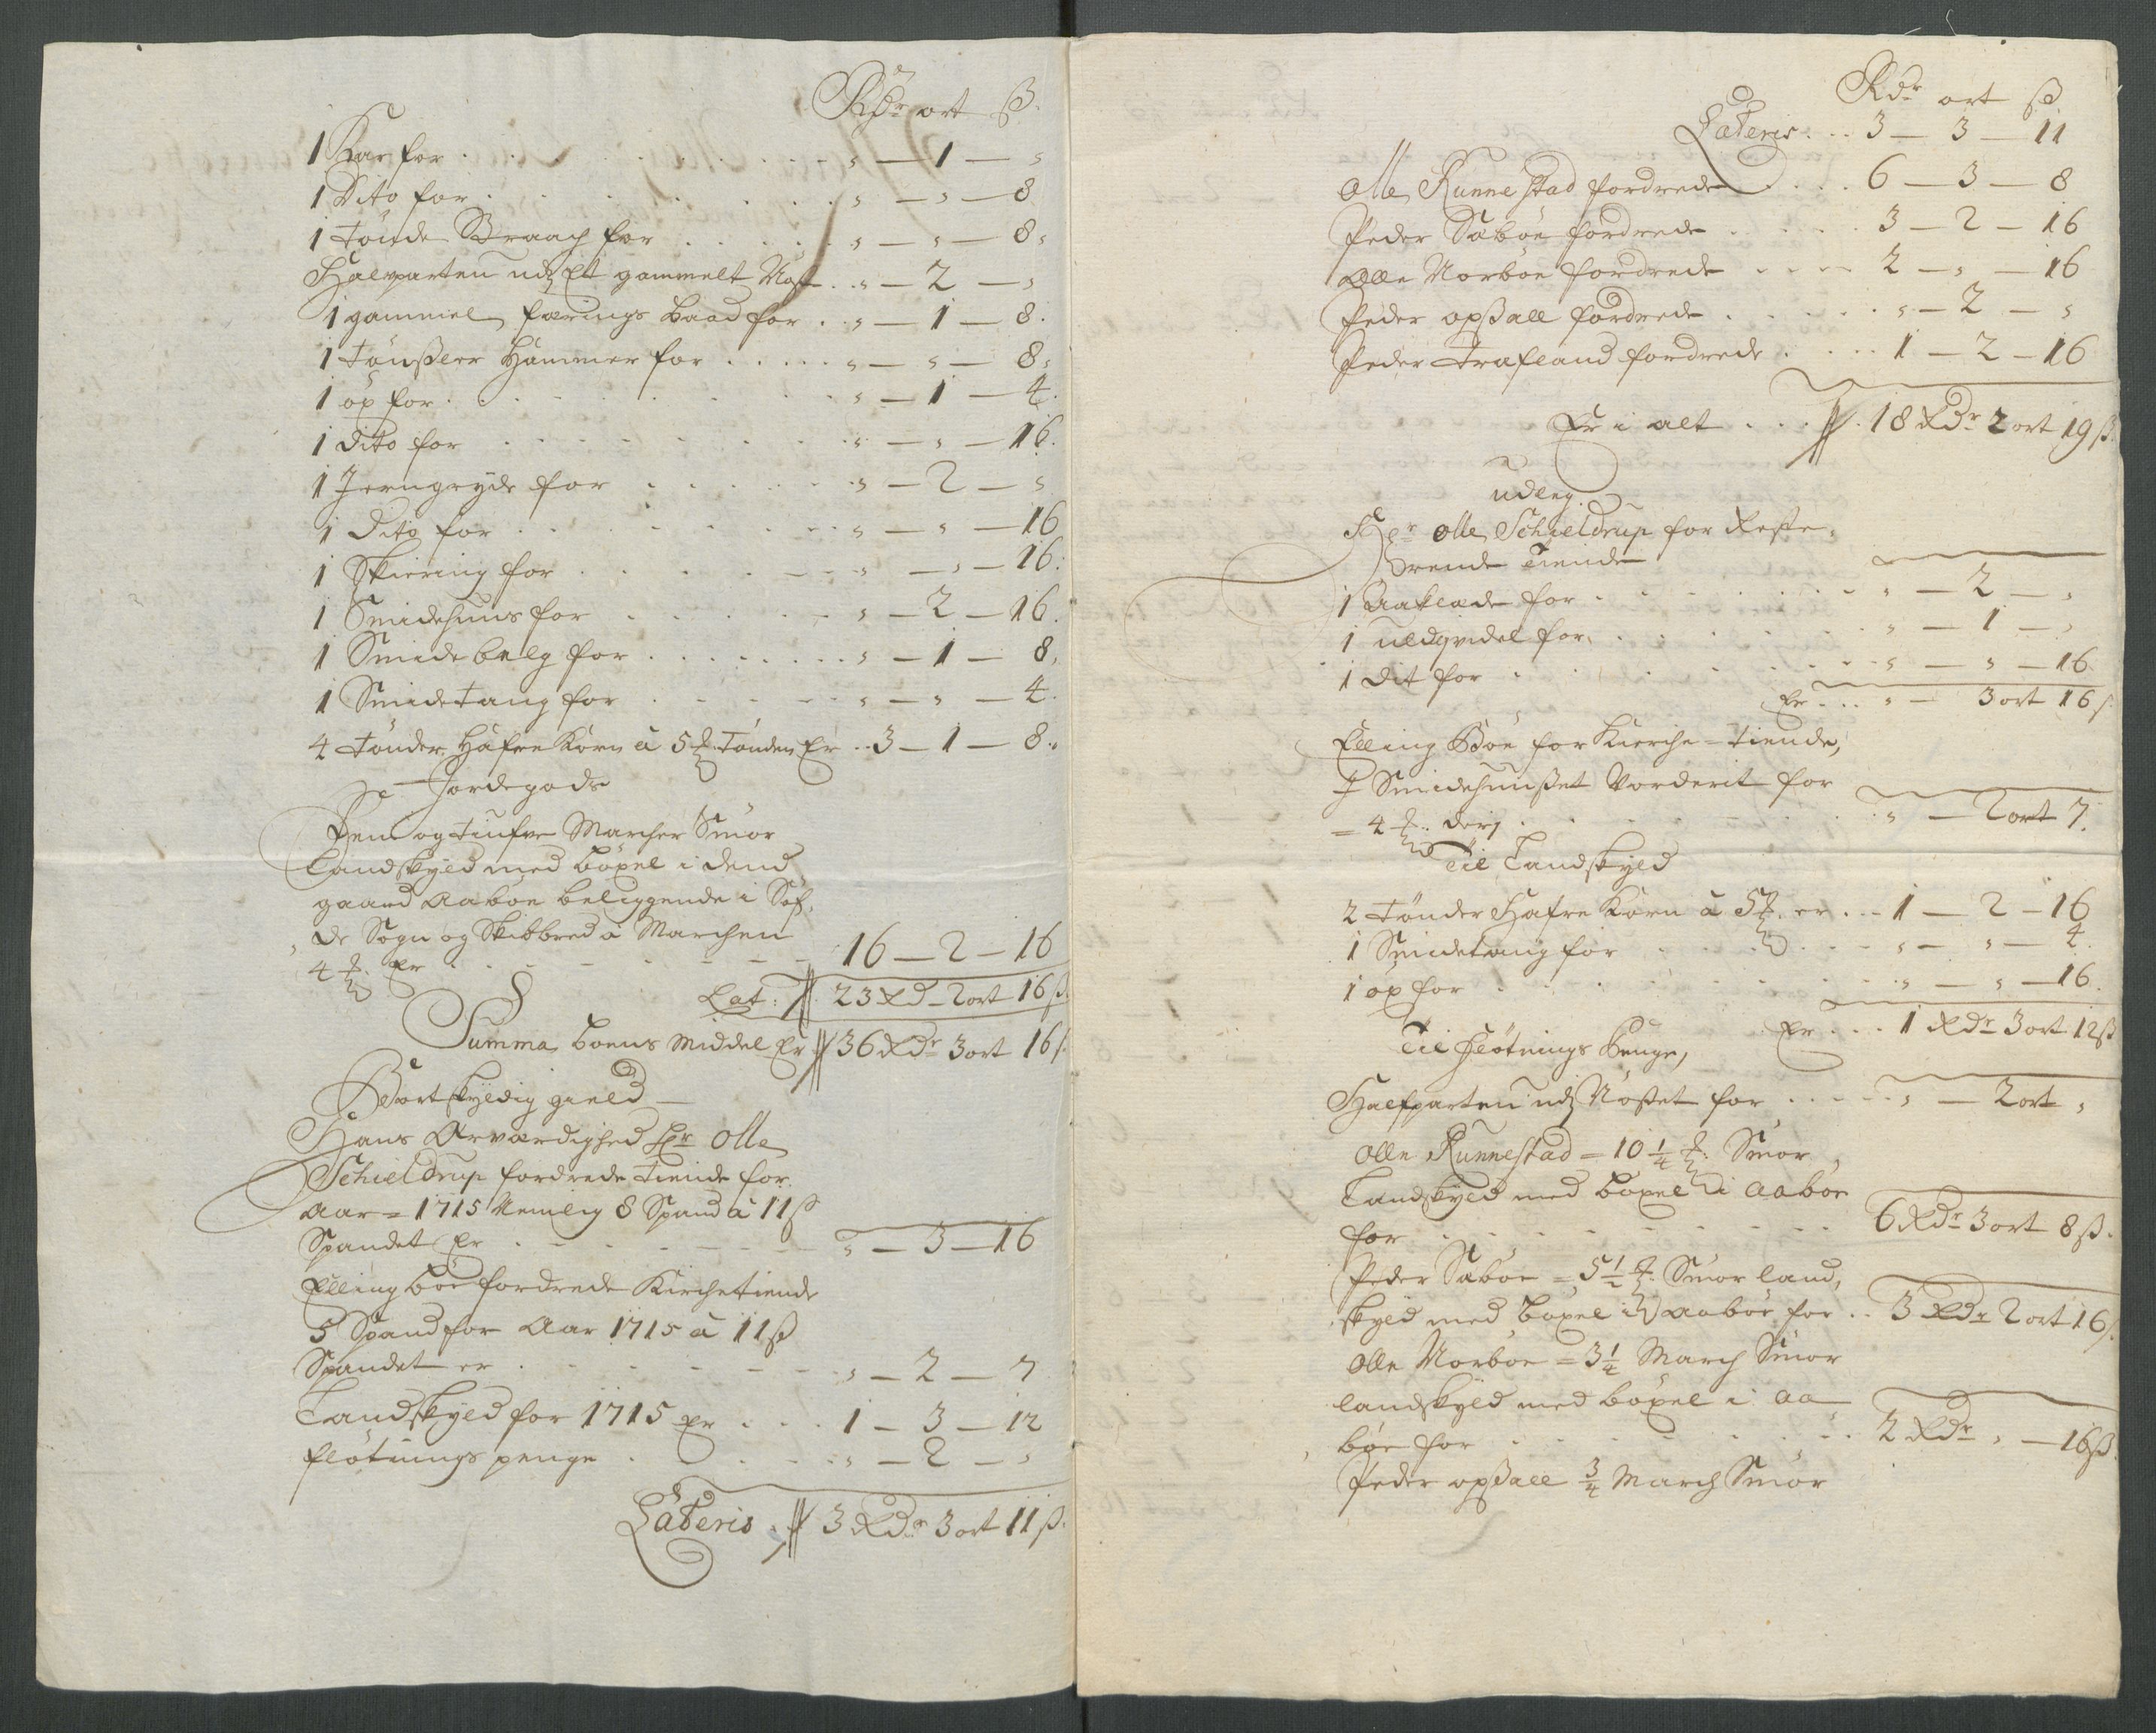 Rdr ort ß.
1 Kar for . . . . . . . . . „ — 1 — „
1 Dito for . . . . . . . . „ — „ — 8
1 tönde Braach for . . . . . „ — „ — 8.
Halvparten udj Et gammelt Nøst . . „ — 2 — „
1 gammel færings baad for . „ — 1 — 8.
1 tönßler Hammer for . . . . . „ — „ — 8.
1 öx for . . . . . . . . „ — 1 — 4.
1 dito for . . . . . . . „ — „ — 16.
1 Jerngryde for . . . . . . „ — 2 — „
1 Dito for . . . . . . . „ — „ — 16
1 Skiering for . . . . . . „ — „ — 16.
1 Smidehuus for . . . . . „ — 2 — 16.
1 Smide belg for . . . . . . „ — 1 — 8.
1 Smidetang for . . . . . „ — „ — 4.
4 tönder Hafre Korn à 5 ℔ tönden Er . . 3 — 1 — 8.
Jordegods
Fem og tiufve Marcher Smör
Landskyld med böxel i dend
gaard Aaböe beliggende i Söf,
de Sogn og Skibbred à Marchen
4 ℔. Er . . . . . . . 16 — 2 — 16
Lat: 23 Rd — 2 ort 16 ß.
Summa boens Middel Er 36 Rdr 3 ort 16 ß.
Bortskyldig gield —
Hans Ærværdighed Hr Olle
Schieldrup fordrede tiende for
Aar = 1715 Nemlig 8 Spand à 11 ß
Spandet Er . . . . . . . „ — 3 — 16
Elling böe fordrede Kirchetiende
5 Spand for Aar 1715 à 11 ß
Spandet er . . . . . . . „ — 2 — 7
Landskyld for 1715 Er . . . 1 — 3 — 12
flötnings penge . . . . . „ — 2 — „
Lateris . 3 Rdr 3 ort 11 ß.
Rdr ort ß.
Lateris . . . 3 — 3 — 11
Olle Runnestad fordrede . . . . 6 — 3 — 8
Peder Saböe fordrede . . . . . 3 — 2 — 16
Olle Norböe fordrede . . . . 2 — „ — 16
Peder opßall fordrede . . . . . „ — 2 — „
Peder trafland fordrede . . . . 1 — 2 — 16
Er i alt . . . . 18 Rdr 2 ort 19 ß.
udleg.
Hr Olle Schieldrup for Reste,
rende Tiende
1 Aaklæde for . . . . . . . „ — 2 — „
1 uldqvidel for. . . . . . . „ — 1 — „
1 dit for . . . . . . . „ — „ — 16
Er . . . „ — 3 ort 16 ß
Elling Böe for Kierche = tiende,
J Smidehuußet Vorderit for
= 4 ℔. derj . . . . . . . „ — 2 ort 7.
Til Landskyld
2 tönder Hafre Korn à 5 ℔. er . . . 1 — 2 — 16
1 Smidetang for . . . . . . „ — „ — 4.
1 öx for . . . . . . . „ — „ — 16.
Er . . . 1 Rdr 3 ort 12 ß
Til flötnings Penge,
Halfparten udj Nößet for . . . . . „ — 2 ort „
Olle Runnestad = 10 1/4 ℔. Smör,
Landskyld med böxel i Aaböe
for . . . . . . . . 6 Rdr 3 ort 8 ß.
Peder Saböe = 5 1/2 ℔. Smör land,
skyld med böxel i Aaböe for . . 3 Rdr 2 ort 16 ß.
Olle Norböe = 3 1/4 March Smör
landskyld med böxel i Aa
böe for . . . . . . . . 2 Rdr „ — 16 ß.
Peder opßall 3/4 March Smör